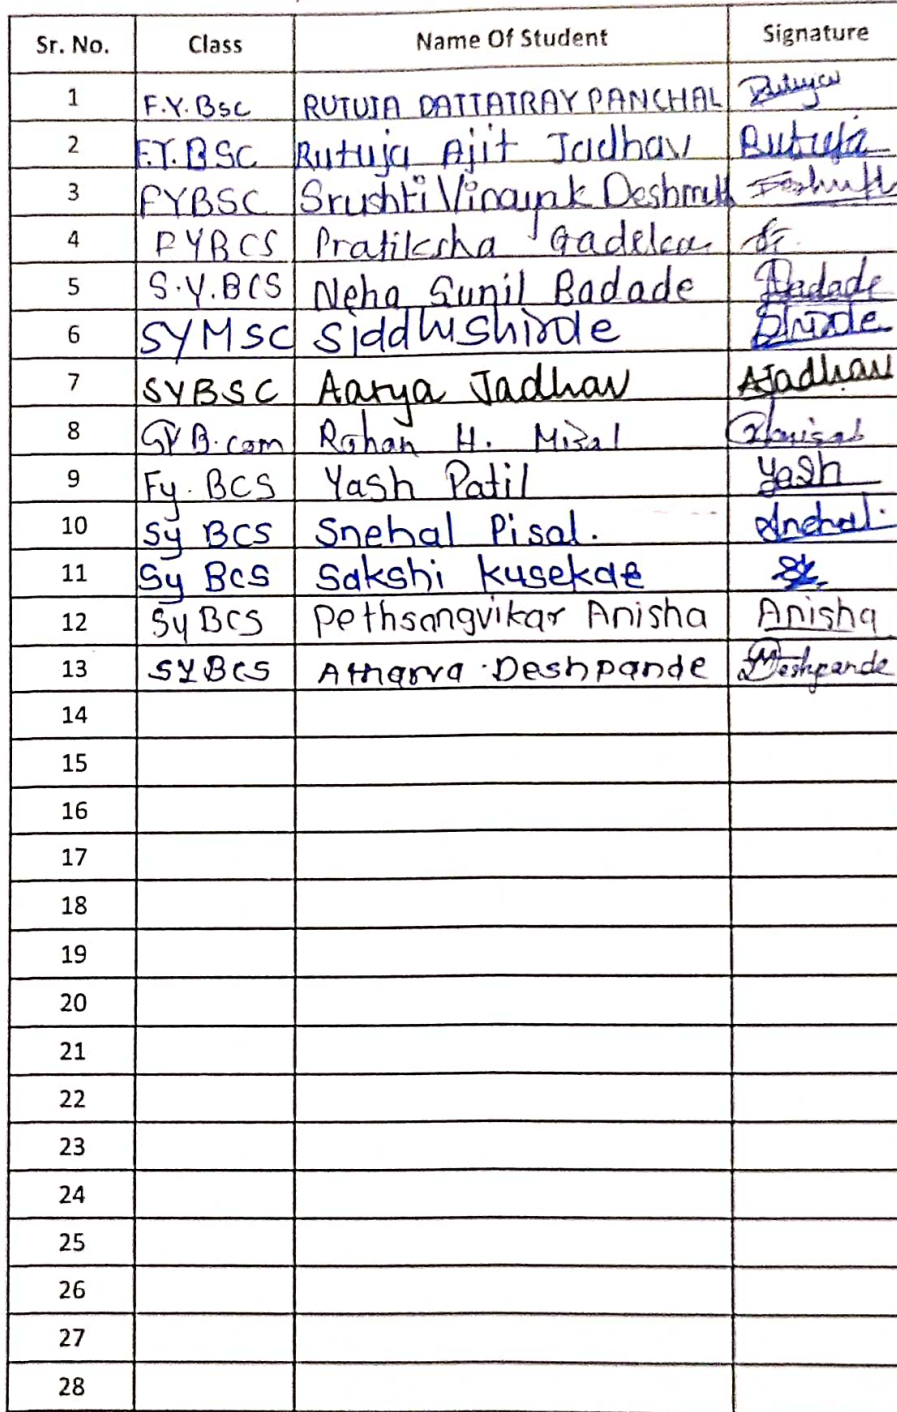 Sr. No. Class Name Of Student Signature
1 F.Y.Bsc RUTUJA DATTATRAY PANCHAL
2 F.Y.BSC Rutuja Ajit Jadhav Rutuja
3 FYBSC Srushti Vinayak Deshmukh
4 FYBCS Pratiksha
5 S.Y.BCS Neha Sunil Badade Badade
6 SYMSC Siddhishinde Shinde
7 SYBSC Aarya Jadhav AJadhav
8 SYB.com Rohan H. Misal
9 Fy.BCS Yash Patil Yash
10 Sy BCS Snehal Pisal. Snehal.
11 Sy BCS Sakshi Kusekde
12 SyBCS Pethsangvikar Anisha Anisha
13 SYBCS Atharva Deshpande Deshpande
14
15
16
17
18
19
20
21
22
23
24
25
26
27
28